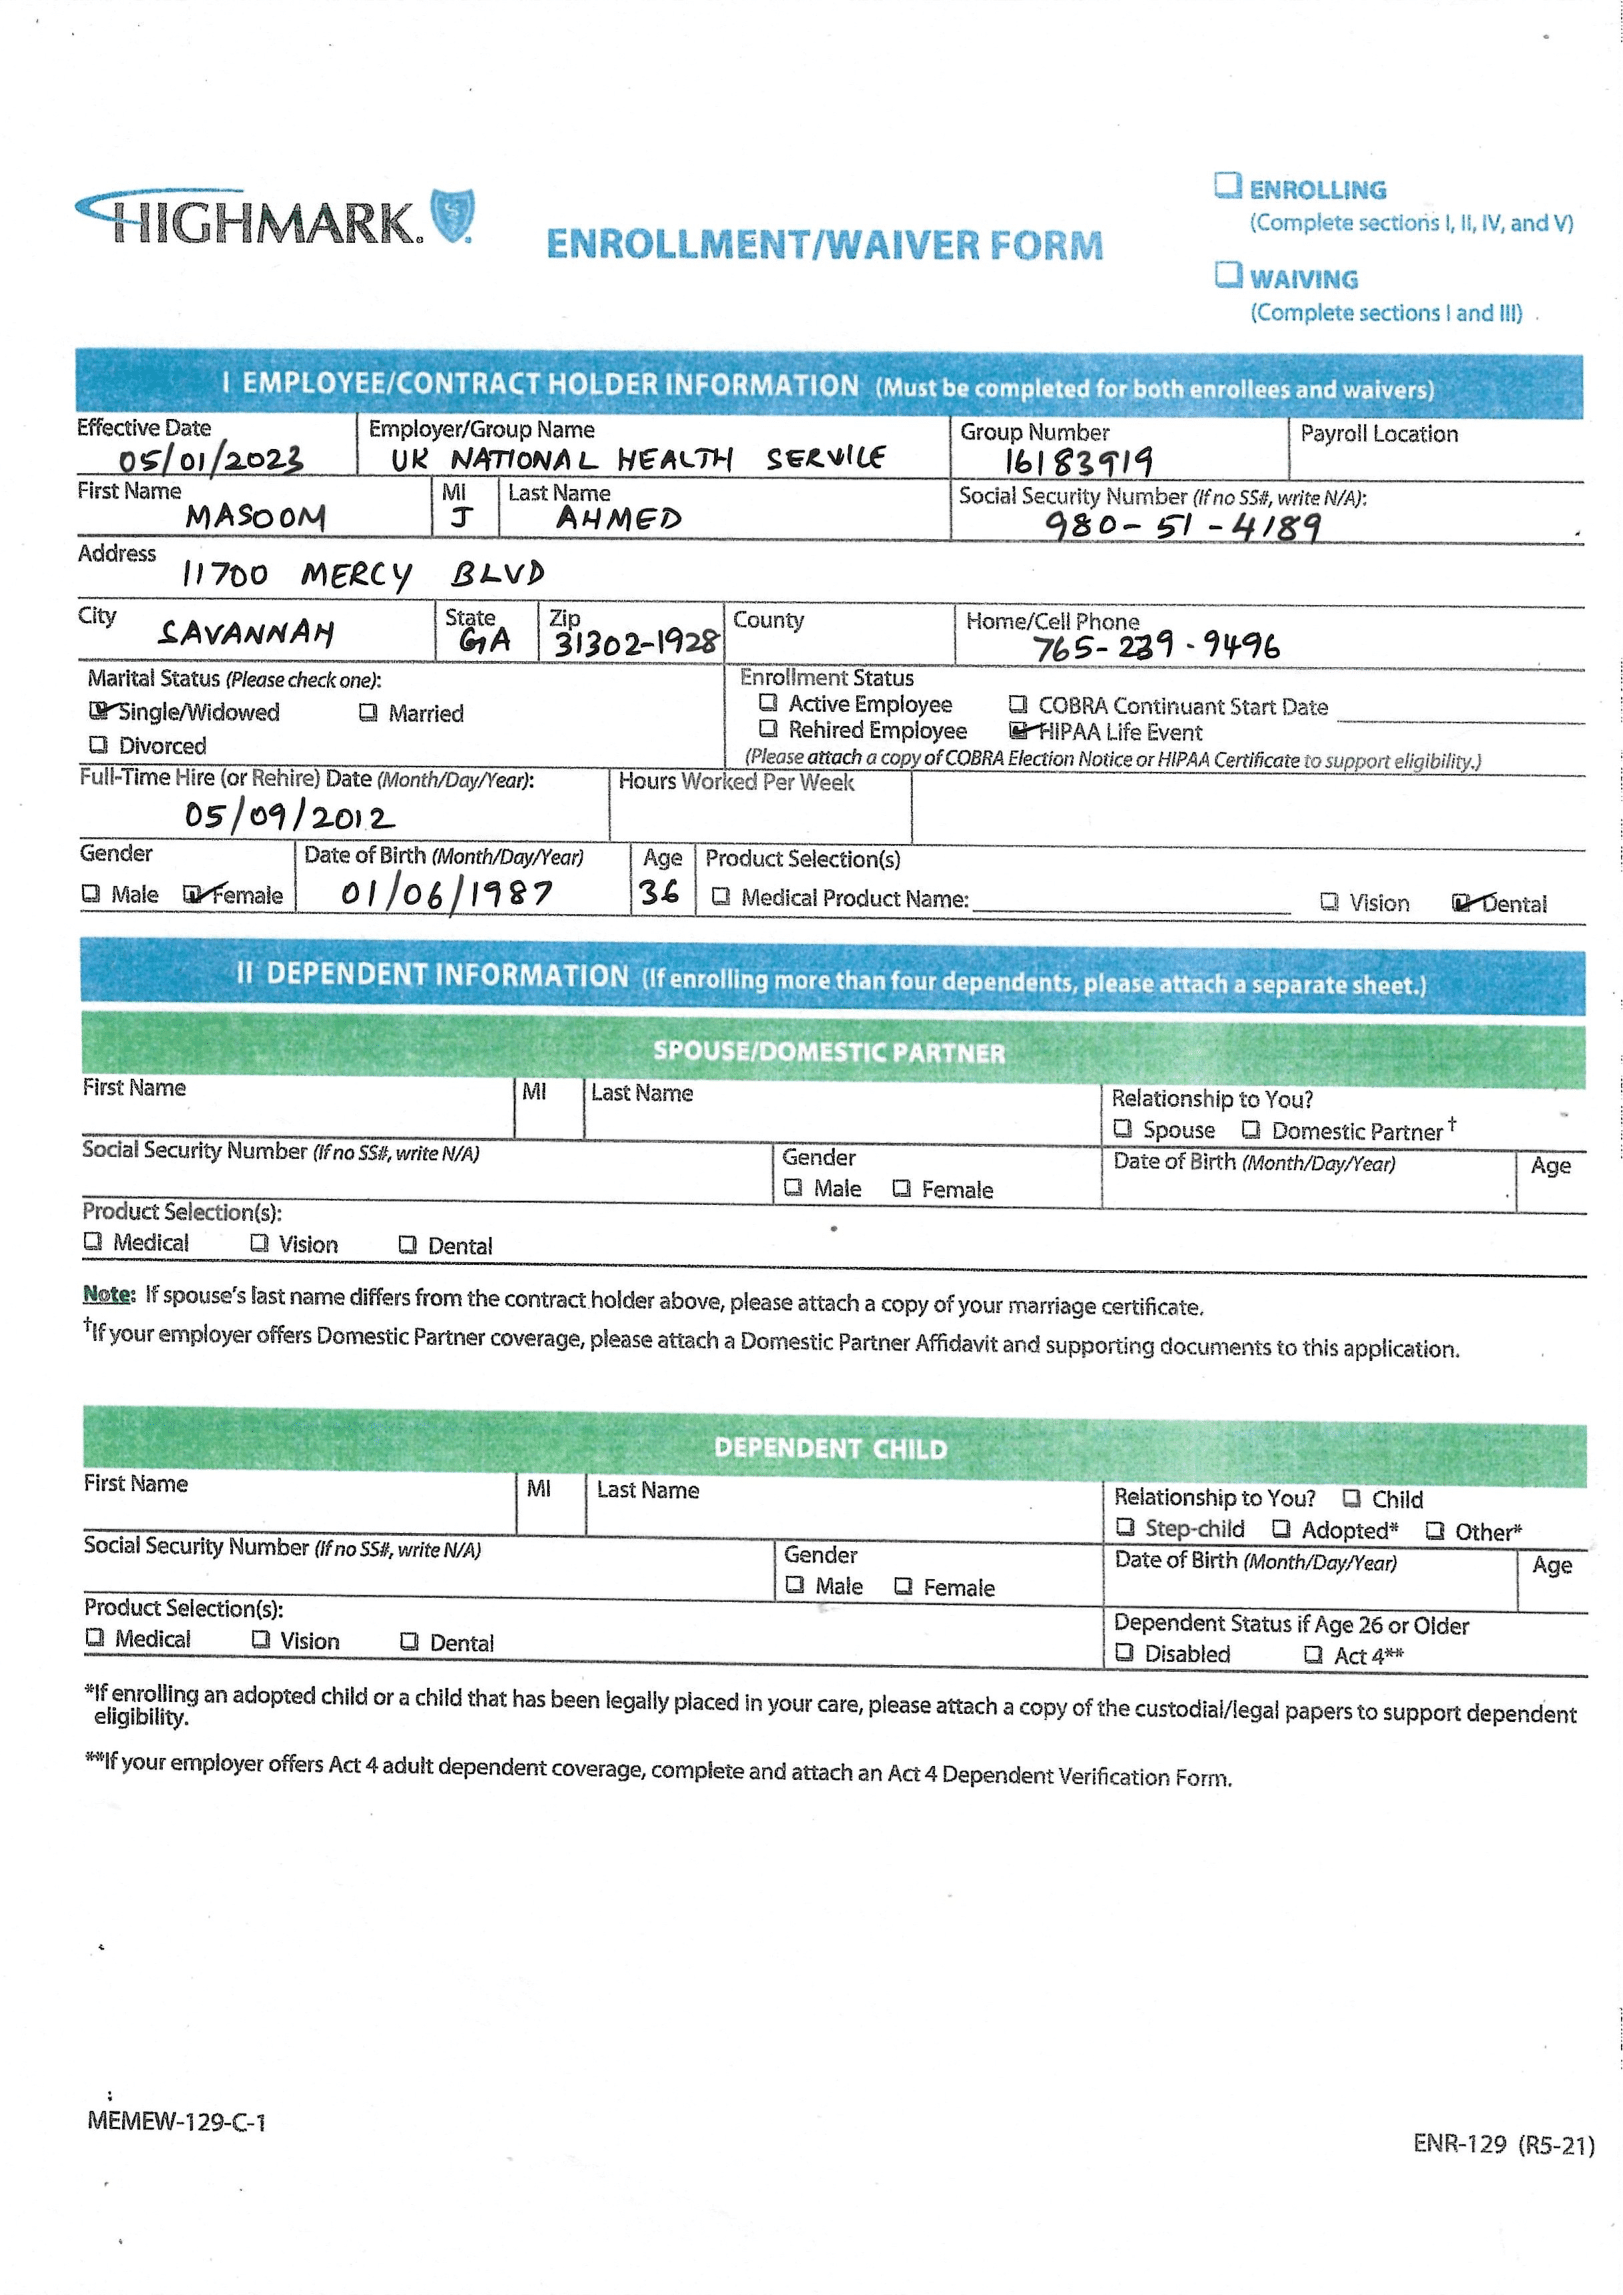 HIGHMARK.
ENROLLMENT/WAIVER FORM
ENROLLING
(Complete sections I, II, IV, and V)
WAIVING
(Complete sections I and III)
I EMPLOYEE/CONTRACT HOLDER INFORMATION (Must be completed for both enrollees and waivers)
Effective Date Employer/Group Name Group Number Payroll Location
05/01/2023 UK NATIONAL HEALTH SERVICE 16183919
First Name MI Last Name Social Security Number (If no SS#, write N/A):
MASOOM J AHMED 980-51-4189
Address
11700 MERCY BLVD
City State Zip County Home/Cell Phone
SAVANNAH GA 31302-1928 765-239-9496
Marital Status (Please check one): Enrollment Status
Single/Widowed Married Active Employee COBRA Continuant Start Date
Divorced Rehired Employee HIPAA Life Event
(Please attach a copy of COBRA Election Notice or HIPAA Certificate to support eligibility.)
Full-Time Hire (or Rehire) Date (Month/Day/Year): Hours Worked Per Week
05/09/2012
Gender Date of Birth (Month/Day/Year) Age Product Selection(s)
Male Female 01/06/1987 36 Medical Product Name: Vision Dental
II DEPENDENT INFORMATION (If enrolling more than four dependents, please attach a separate sheet.)
SPOUSE/DOMESTIC PARTNER
First Name MI Last Name Relationship to You?
Spouse Domestic Partner†
Social Security Number (If no SS#, write N/A) Gender Date of Birth (Month/Day/Year) Age
Male Female
Product Selection(s):
Medical Vision Dental
Note: If spouse's last name differs from the contract holder above, please attach a copy of your marriage certificate.
†If your employer offers Domestic Partner coverage, please attach a Domestic Partner Affidavit and supporting documents to this application.
DEPENDENT CHILD
First Name MI Last Name Relationship to You? Child
Step-child Adopted* Other*
Social Security Number (If no SS#, write N/A) Gender Date of Birth (Month/Day/Year) Age
Male Female
Product Selection(s): Dependent Status if Age 26 or Older
Medical Vision Dental Disabled Act 4**
*If enrolling an adopted child or a child that has been legally placed in your care, please attach a copy of the custodial/legal papers to support dependent
eligibility.
**If your employer offers Act 4 adult dependent coverage, complete and attach an Act 4 Dependent Verification Form.
MEMEW-129-C-1
ENR-129 (R5-21)